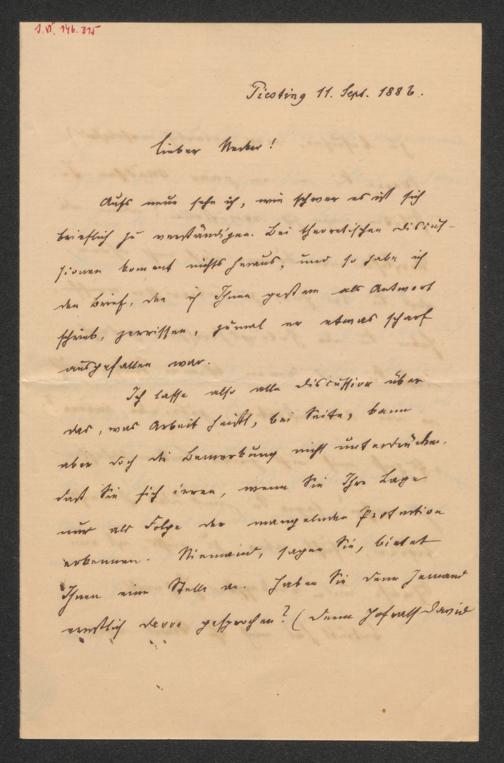 I.N. 146.815
Piesting 11. Sept. 1886.
Lieber Necker!
Aufs neue sehe ich, wie schwer es ist sich
brieflich zu verständigen. Bei theoretischen Discus-
sionen kommt nichts heraus, und so habe ich
den Brief, den ich Ihnen gestern als Antwort
schrieb, zerrissen, zumal er etwas scharf
ausgefallen war.
Ich lasse also alle Discussion über
das, was Arbeit heißt, bei Seite, kann
aber doch die Bemerkung nicht unterdrücken,
daß Sie sich irren, wenn Sie Ihre Lage
nur als Folge der mangelnden Protection
erkennen. Niemand, sagen Sie, bietet
Ihnen eine Stelle an. Haben Sie denn Jemand
ernstlich davon gesprochen? (Denn Hofrath David